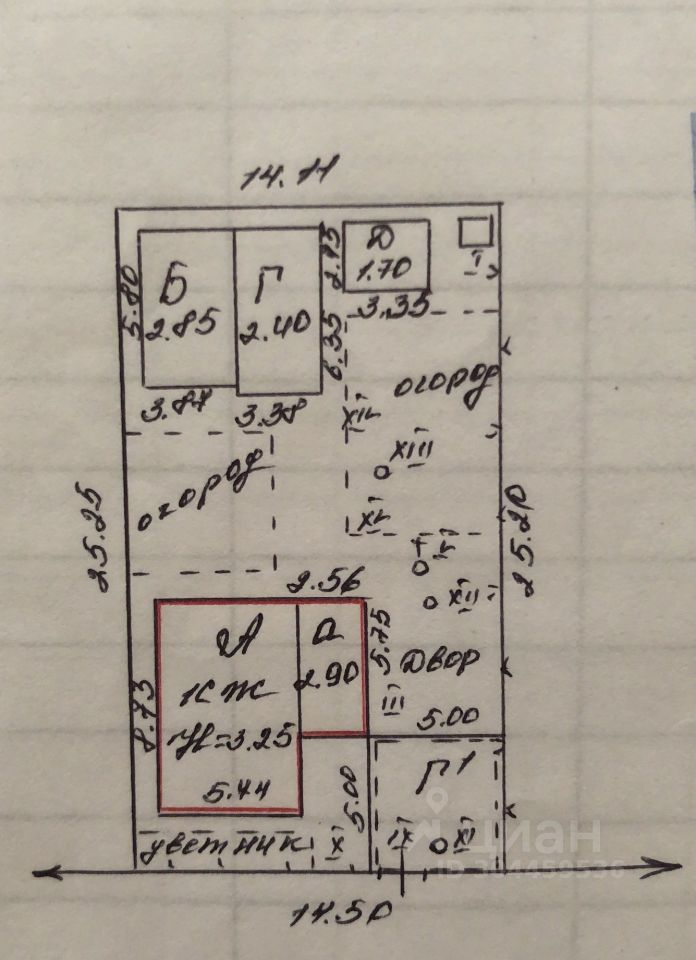 14.11
Б
2.85
5.80
3.87
Г
2.40
3.38
6.35
2.45
Д
1.70
3.35
I
огород
XIV
XIII
XV
огород
25.25
25.20
V
XII
2.56
А
1КЖ
H=3.25
5.44
8.73
а
2.90
5.75
Двор
III
5.00
Г1
5.00
цветник
X
IX
XI
14.50
циан